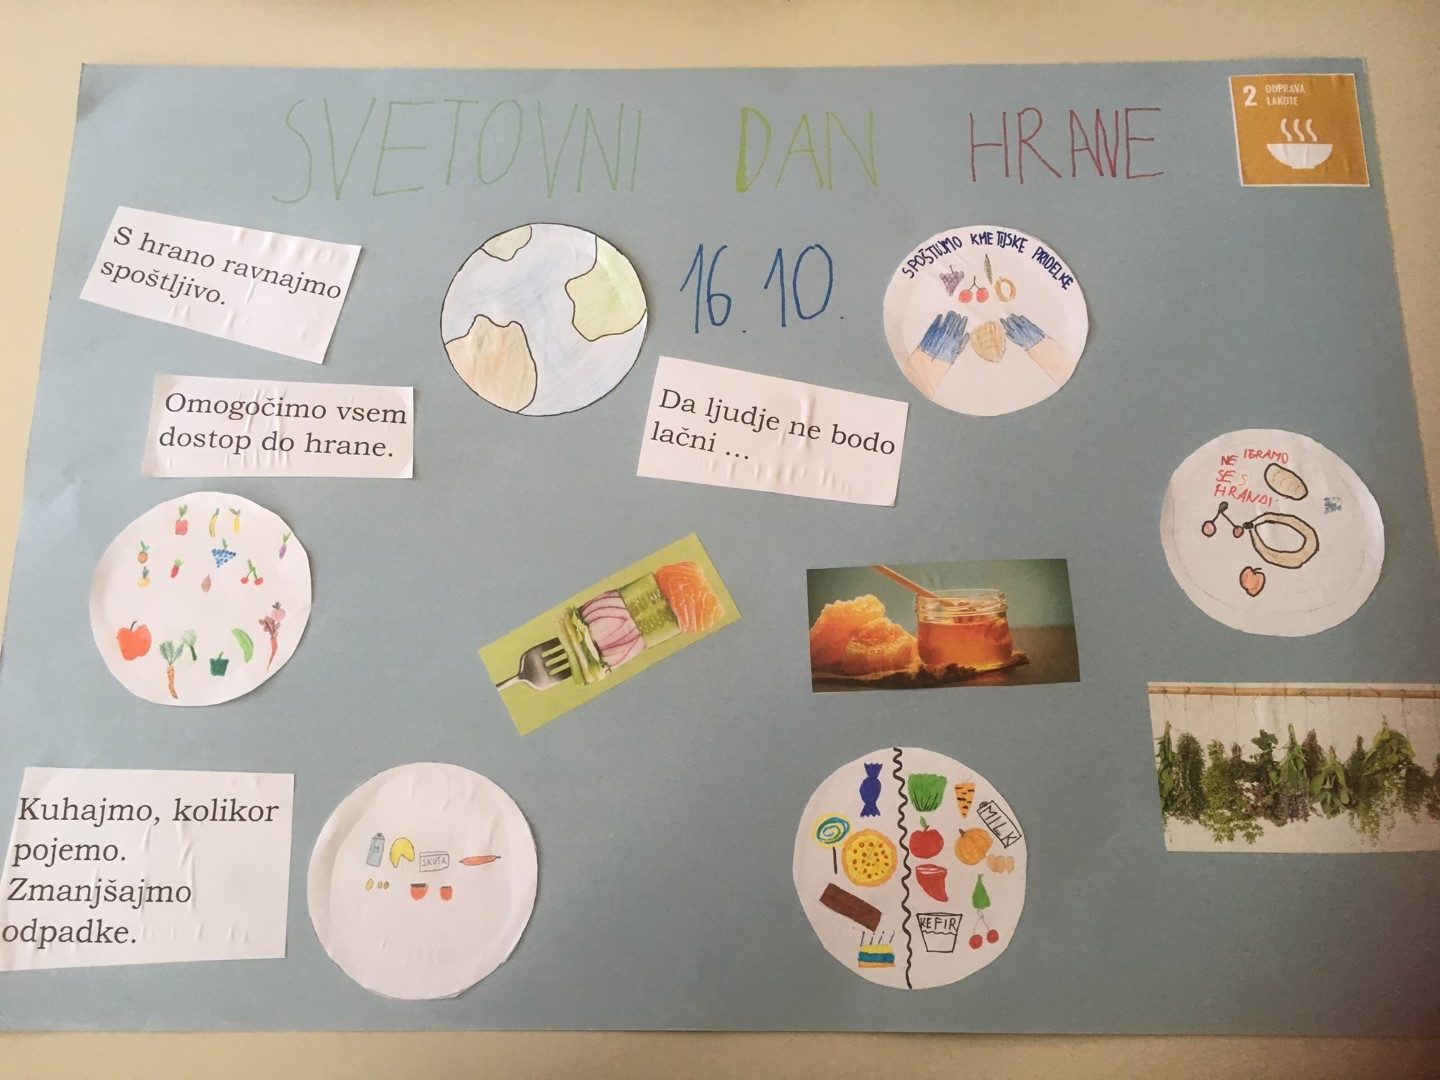 SVETOVNI DAN HRANE
2 ODPRAVA
LAKOTE
16. 10.
S hrano ravnajmo
spoštljivo.
SPOŠTUJMO KMETIJSKE PRIDELKE
Omogočimo vsem
dostop do hrane.
Da ljudje ne bodo
lačni ...
NE IGRAMO
SE S
HRANOI
Kuhajmo, kolikor
pojemo.
Zmanjšajmo
odpadke.
M
SKUTA
MILK
KEFIR